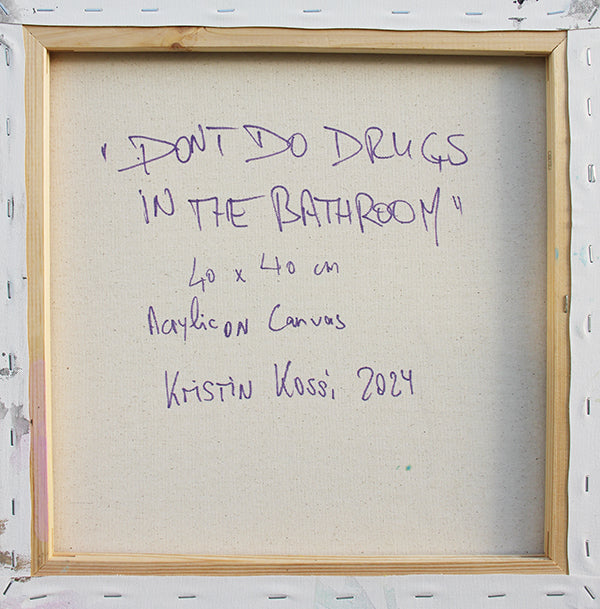 "DONT DO DRUGS
IN THE BATHROOM"
40 x 40 cm
Acrylic ON Canvas
KRISTIN KOSSI 2024